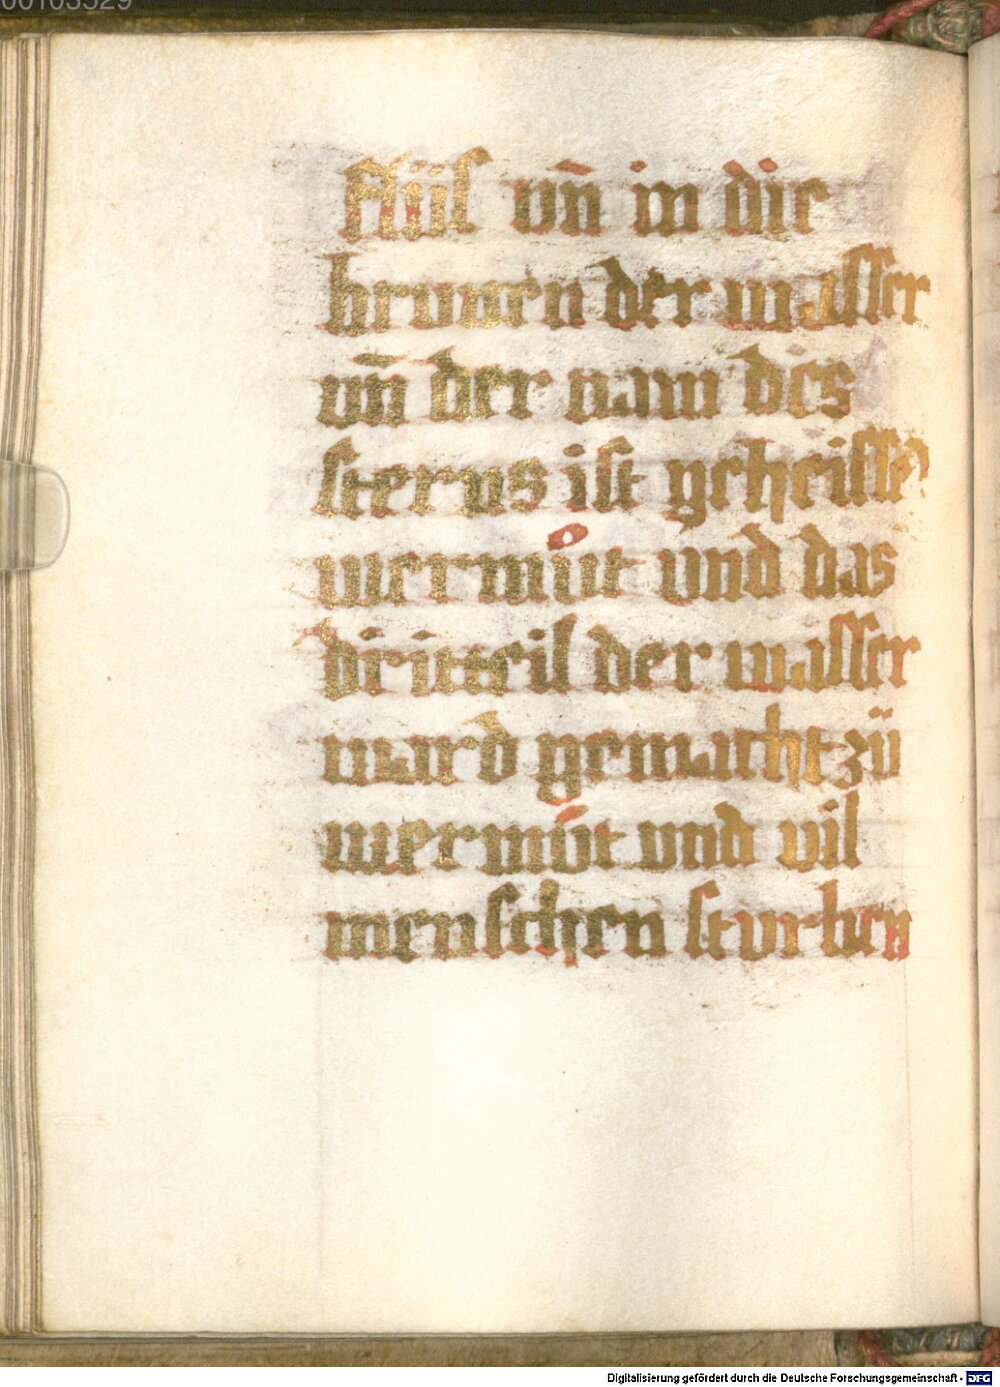 00103529
flüß vñ in die
brunnen der wasser
vñ der nam des
sterns ist geheisse
wermůt und das
dritteil der wasser
ward gemacht zü
wermůt vnd vil
menschen sturben
Digitalisierung gefördert durch die Deutsche Forschungsgemeinschaft - DFG